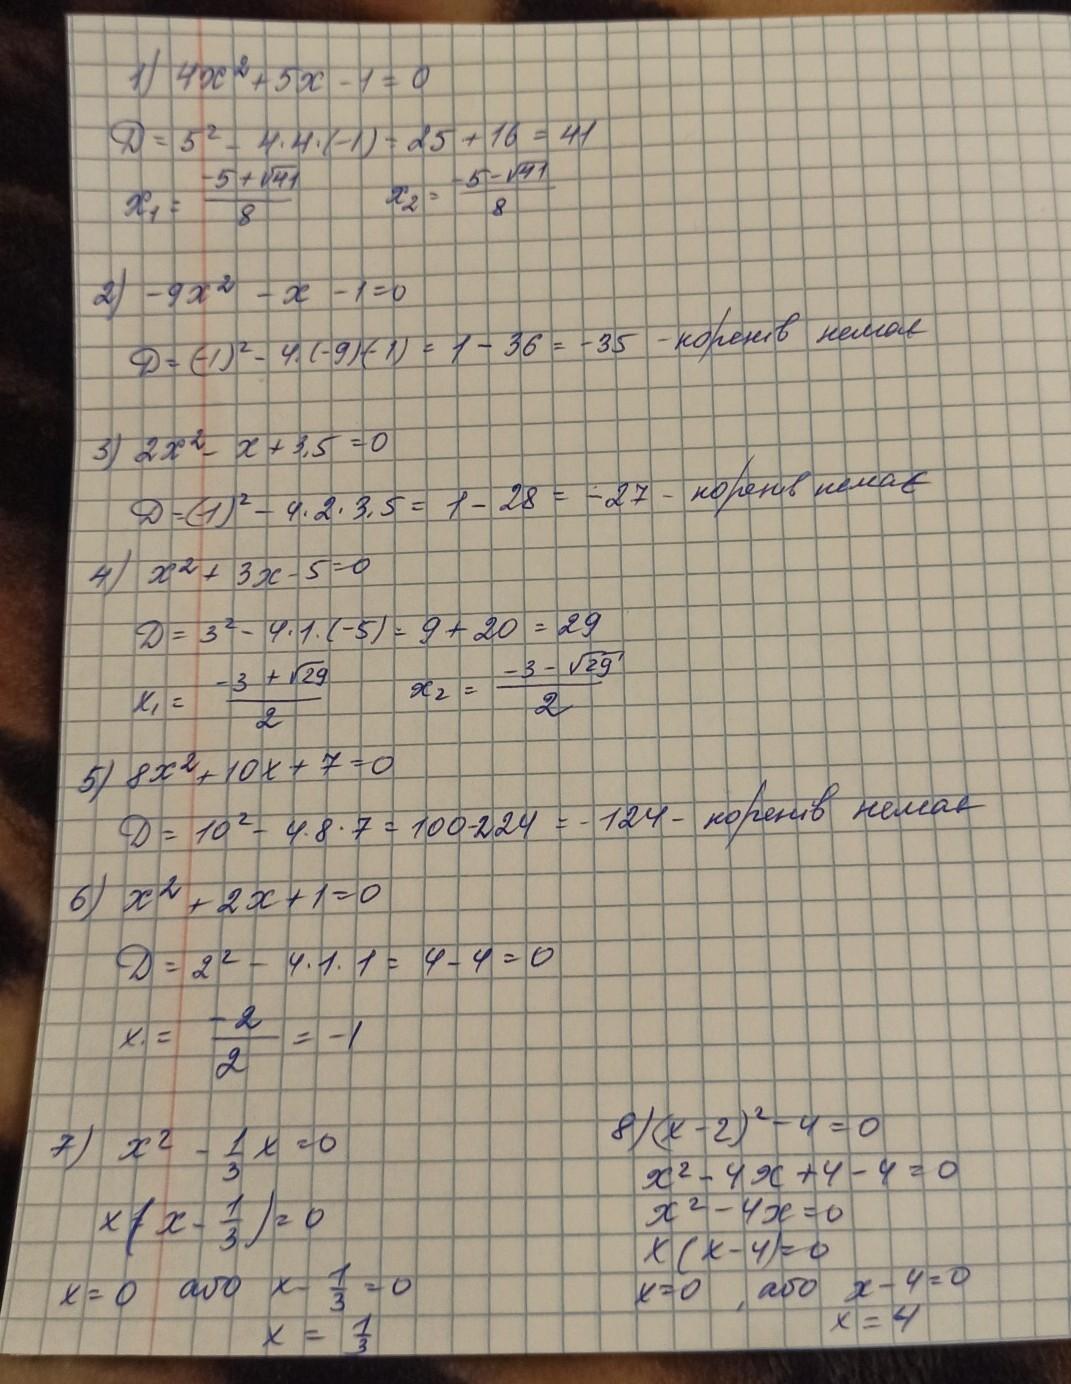 1) 4x² + 5x - 1 = 0
D = 5² - 4·4·(-1) = 25 + 16 = 41
x₁ = (-5 + √41)/8   x₂ = (-5 - √41)/8
2) -9x² - x - 1 = 0
D = (-1)² - 4·(-9)(-1) = 1 - 36 = -35 - коренів немає
3) 2x² - x + 3,5 = 0
D = (-1)² - 4·2·3,5 = 1 - 28 = -27 - коренів немає
4) x² + 3x - 5 = 0
D = 3² - 4·1·(-5) = 9 + 20 = 29
x₁ = (-3 + √29)/2   x₂ = (-3 - √29)/2
5) 8x² + 10x + 7 = 0
D = 10² - 4·8·7 = 100-224 = -124 - коренів немає
6) x² + 2x + 1 = 0
D = 2² - 4·1·1 = 4 - 4 = 0
x = -2/2 = -1
7) x² - 1/3 x = 0
x(x - 1/3) = 0
x = 0 або x - 1/3 = 0
x = 1/3
8) (x - 2)² - 4 = 0
x² - 4x + 4 - 4 = 0
x² - 4x = 0
x(x - 4) = 0
x = 0, або x - 4 = 0
x = 4